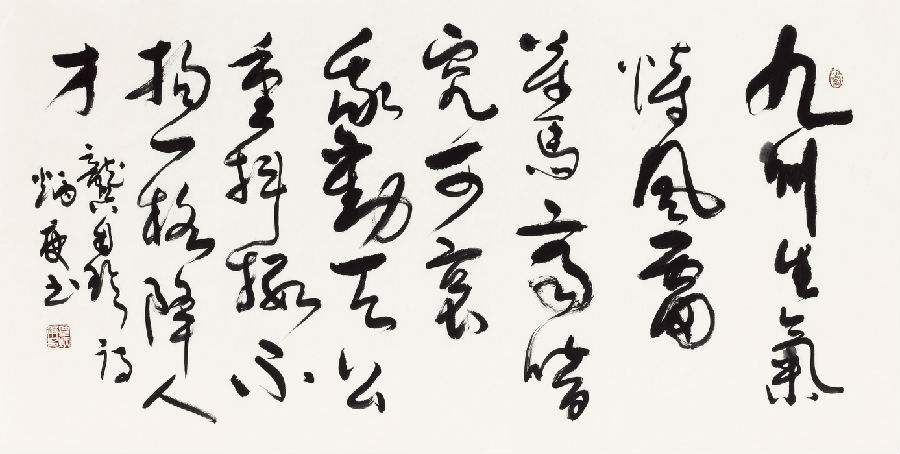 九州生氣
恃風雷
萬馬齊喑
究可哀
我勸天公
重抖擻不
拘一格降人
才
龔自珍詩
書